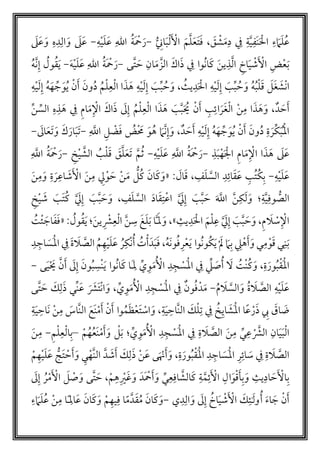 عُلَمَاءِ الْحَنَفِيَّةِ فِي دِمَشْقَ، فَتَعَلَّمَ الْأَلْبَانِيُّ - رَحْمَةُ اللهِ عَلَيْهِ - عَلَى وَالِدِهِ وَعَلَى
بَعْضِ الْأَشْيَاخِ الَّذِينَ كَانُوا فِي ذَاكَ الزَّمَانِ، حَتَّى - رَحْمَةُ اللهِ عَلَيْهِ - يَقُولُ: إِنَّهُ
انْشَغَلَ قَلْبُهُ وَحُبِّبَ إِلَيْهِ الْحَدِيثُ، وَحُبِّبَ إِلَيْهِ هَذَا الْعِلْمُ دُونَ أَنْ يُوَجِّهَهُ إِلَيْهِ
أَحَدٌ، وَهَذَا مِنْ الْغَرَائِبِ أَنْ يُحَبَّبَ هَذَا الْعِلْمُ إِلَى ذَاكَ الْإِمَامِ فِي هَذِهِ السِّنِّ
الْمُبَكِّرَةِ دُونَ أَنْ يُوَجِّهَهُ إِلَيْهِ أَحَدٌ، وَإِنَّمَا هُوَ مَحْضُ فَضْلِ اللَّهِ - تَبَارَكَ وَتَعَالَى -
عَلَى هَذَا الْإِمَامِ الْجِهْبَذِ - رَحْمَةُ اللَّهِ عَلَيْهِ - وَثُمَّ تَعَلَّقَ قَلْبُ الشَّيْخِ - رَحْمَةُ اللَّهِ
عَلَيْهِ - بِكُتُبِ عَقَائِدِ السَّلَفِ، قَالَ: «وَكَانَ كُلُّ مَنْ حَوْلِي مِنَ الْأَشَاعِرَةِ وَمِنَ
الصُّوفِيَّةِ؛ وَلَكِنَّ اللَّهَ حَبَّبَ إِلَيَّ اعْتِقَادَ السَّلَفِ، وَحَبَّبَ إِلَيَّ كُتُبَ شَيْخِ
الْإِسْلَامِ، وَحَبَّبَ إِلَيَّ عِلْمَ الْحَدِيثِ»، وَلَمَّا بَلَغَ سِنَّ الْعِشْرِينَ؛ يَقُولُ: «فَفَجَئْتُ
بَنِي قَوْمِي وَأَهْلِي بِمَا لَمْ يَكُونُوا يَعْرِفُونَهُ، فَبَدَأْتُ أُنْكِرُ عَلَيْهِمُ الصَّلَاةَ فِي الْمَسَاجِدِ
الْمَقْبُورَةِ، وَكُنْتُ لَا أُصَلِّي فِي الْمَسْجِدِ الْأُمَوِيِّ لِمَا كَانُوا يَنْسِبُونَ إِلَى أَنَّ يَحْيَى -
عَلَيْهِ الصَّلَاةُ وَالسَّلَامُ - مَدْفُونٌ فِي الْمَسْجِدِ الْأُمَوِيِّ، وَانْتَشَرَ عَنِّي ذَلِكَ حَتَّى
ضَاقَ بِي ذَرْعًا مَشَايِخُ تِلْكَ النَّاحِيَةِ، وَاسْتَعْظَمُوا أَنْ أَمْنَعَ النَّاسَ مِنْ نَاحِيَةِ
الْبَيَانِ الشَّرْعِيِّ مِنَ الصَّلَاةِ فِي الْمَسْجِدِ الْأُمَوِيِّ؛ بَلْ وَأَمْنَعُهُمْ - بِالْعِلْمِ - مِنَ
الصَّلَاةِ فِي سَائِرِ الْمَسَاجِدِ الْمَقْبُورَةِ، وَأَنْهَى عَنْ ذَلِكَ أَشَدَّ النَّهْيِ، وَأَحْتَجُّ عَلَيْهِمْ
بِالْأَحَادِيثِ وَبِأَقْوَالِ الْأَئِمَّةِ كَالشَّافِعِيِّ وَأَحْمَدَ وَغَيْرِهِمْ، حَتَّى وَصَلَ الْأَمْرُ إِلَى
أَنْ جَاءَ أُولَئِكَ الْأَشْيَاخُ إِلَى وَالِدِي - وَكَانَ مُقَدَّمًا فِيهِمْ وَكَانَ عَالِمًا مِنْ عُلَمَاءِ